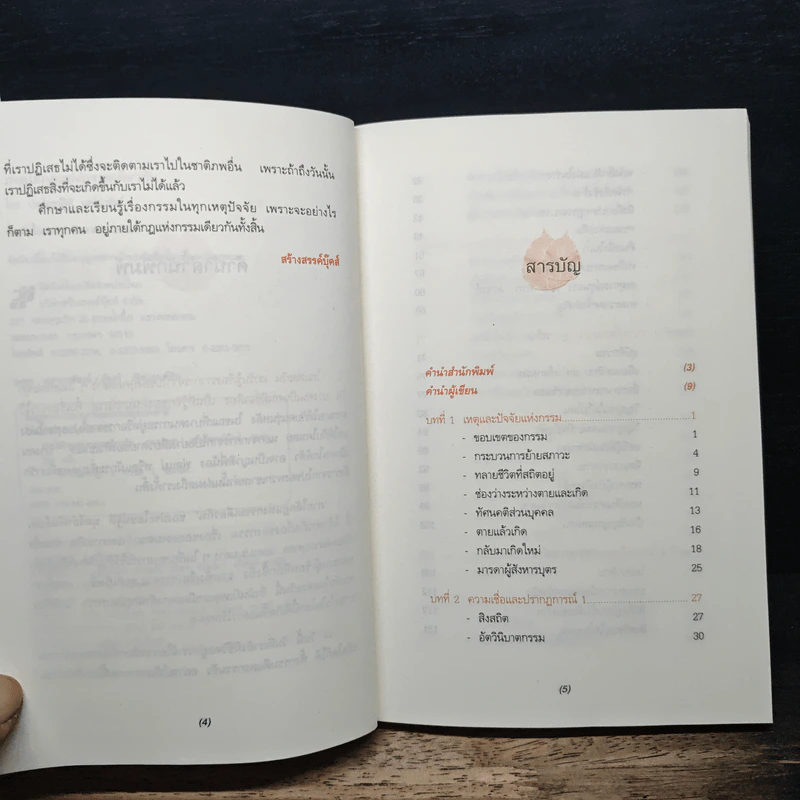 ที่เราปฏิเสธไม่ได้ซึ่งจะติดตามเราไปในชาติภพอื่น เพราะถ้าถึงวันนั้น
เราปฏิเสธสิ่งที่จะเกิดขึ้นกับเราไม่ได้แล้ว
ศึกษาและเรียนรู้เรื่องกรรมในทุกเหตุปัจจัย เพราะจะอย่างไร
ก็ตาม เราทุกคน อยู่ภายใต้กฎแห่งกรรมเดียวกันทั้งสิ้น
สร้างสรรค์บุ๊คส์
(4)
สารบัญ
คำนำสำนักพิมพ์ (3)
คำนำผู้เขียน (9)
บทที่ 1 เหตุและปัจจัยแห่งกรรม 1
- ขอบเขตของกรรม 1
- กระบวนการย้ายสภาวะ 4
- ทลายชีวิตที่สถิตอยู่ 9
- ช่องว่างระหว่างตายและเกิด 11
- ทัศนคติส่วนบุคคล 13
- ตายแล้วเกิด 16
- กลับมาเกิดใหม่ 18
- มารดาผู้สังหารบุตร 25
บทที่ 2 ความเชื่อและปรากฏการณ์ 1 27
- สิงสถิต 27
- อัตวินิบาตกรรม 30
(5)